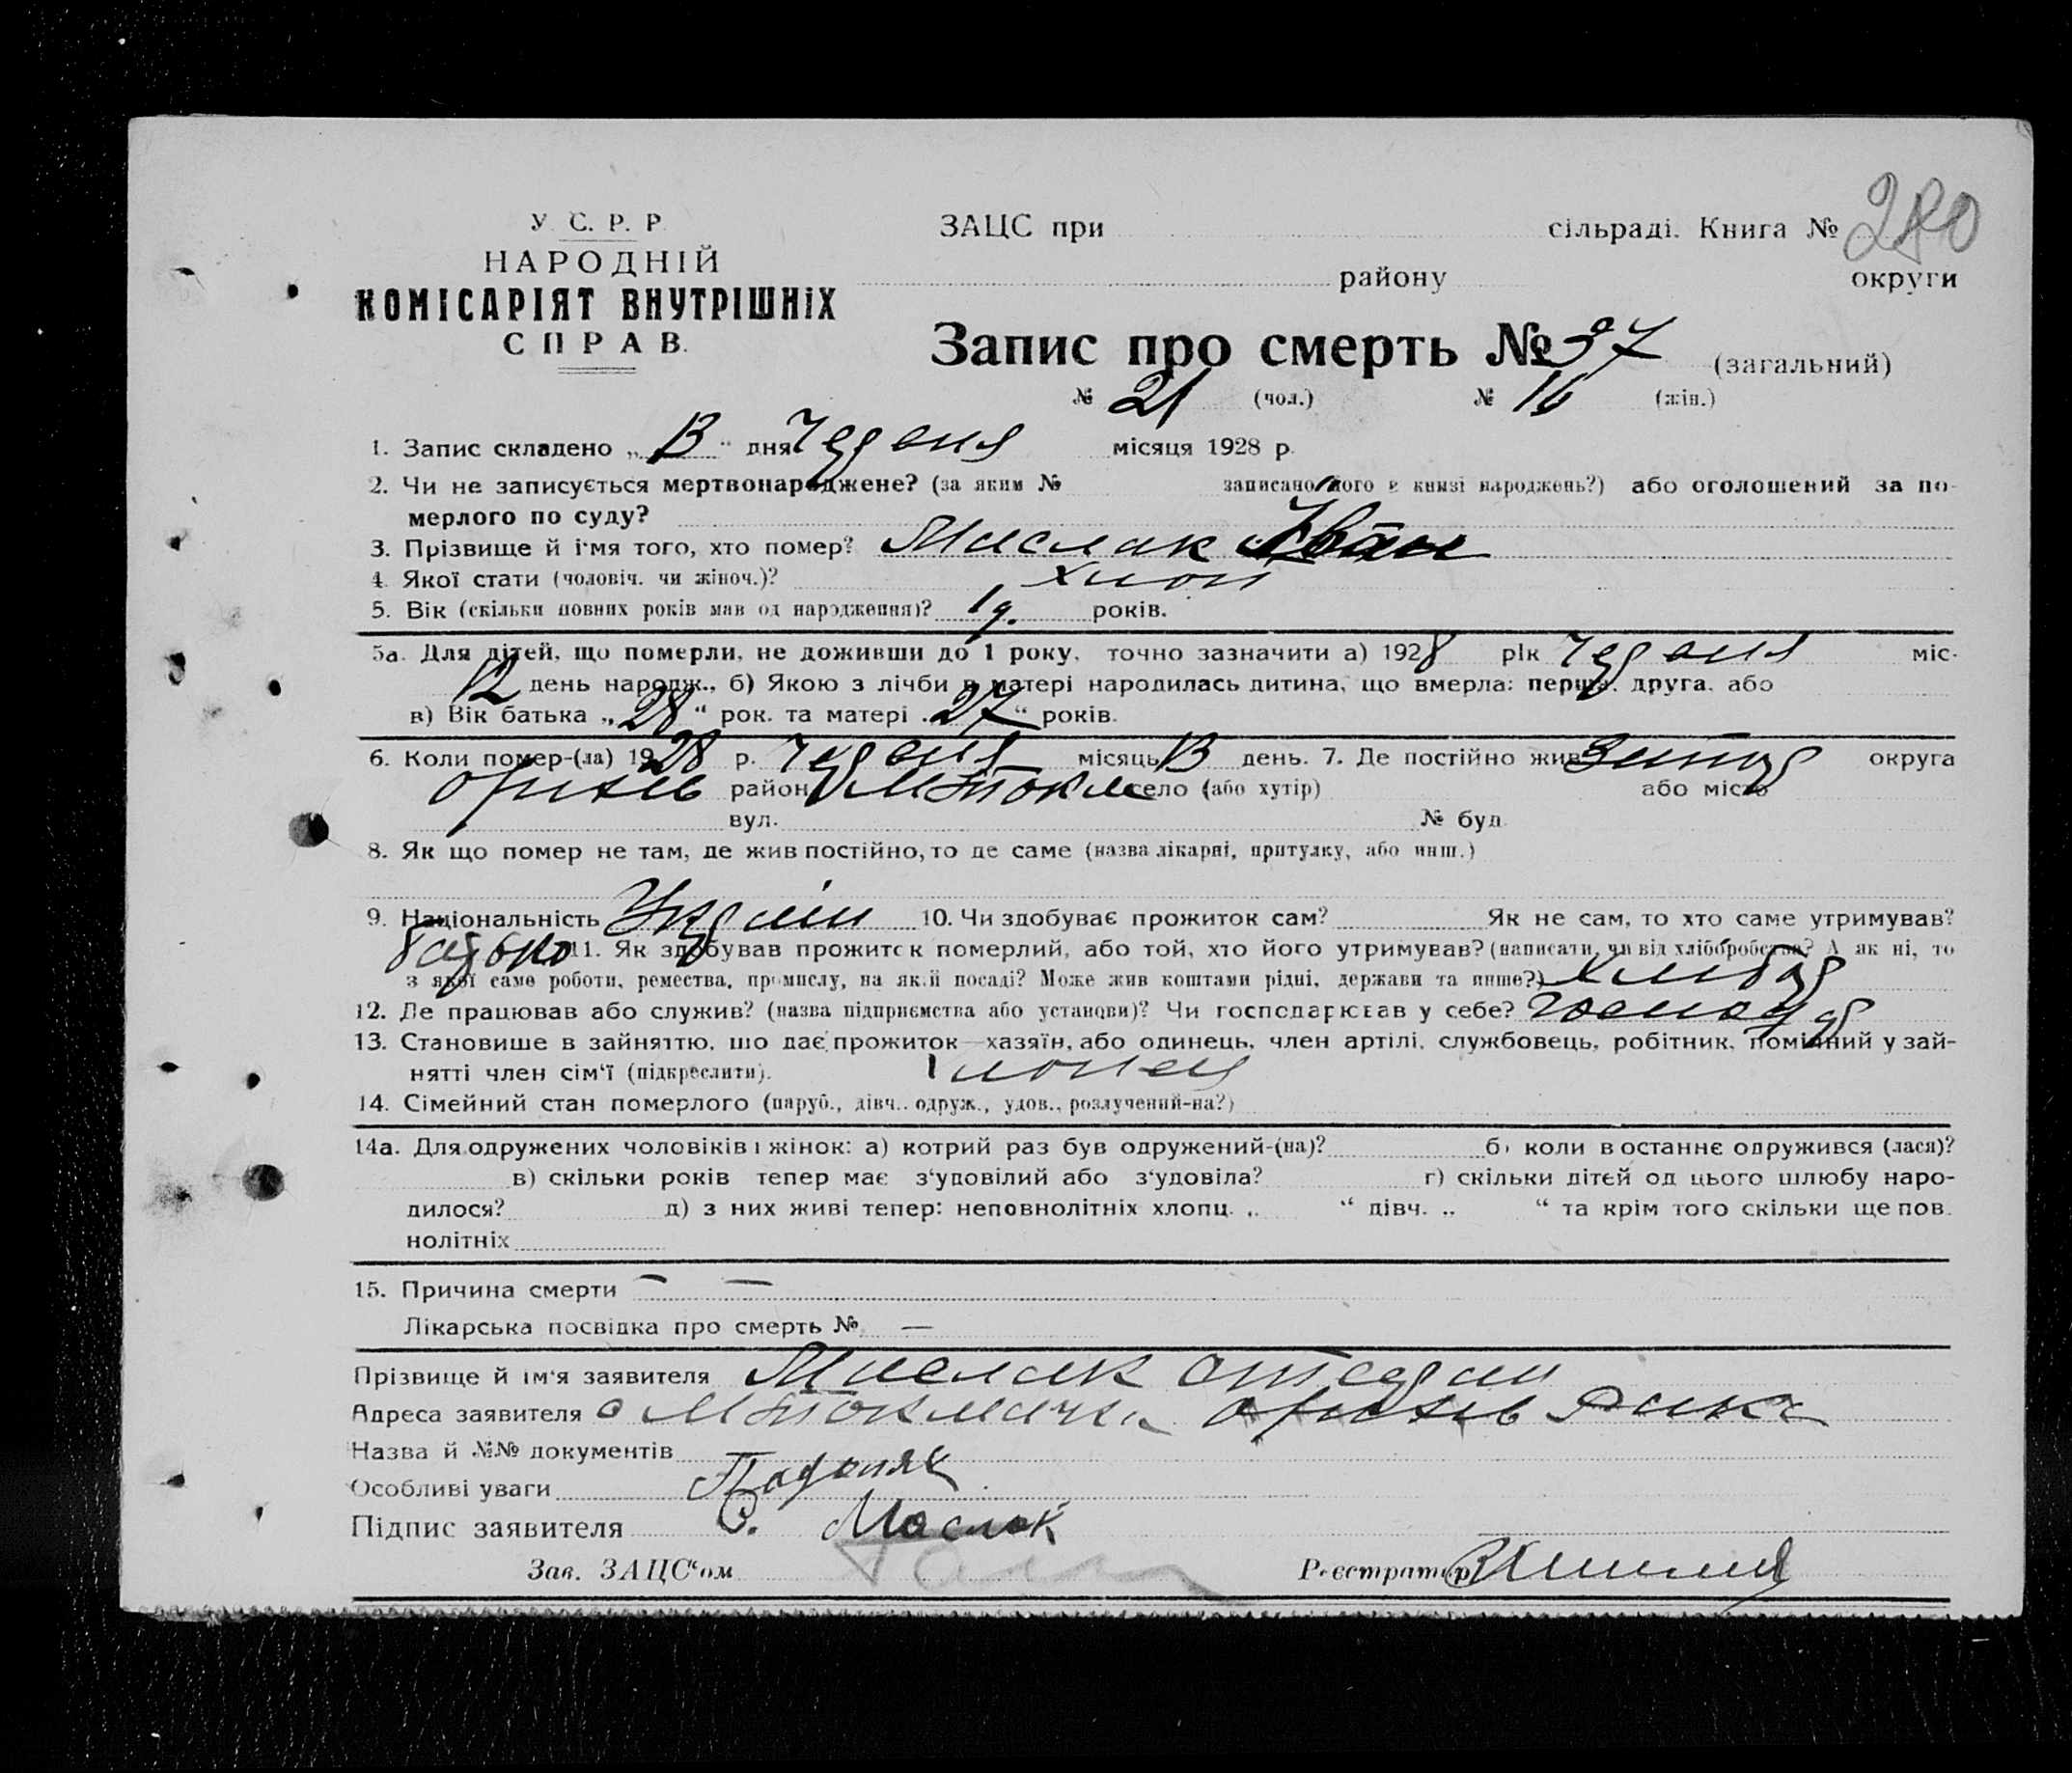 У. С. Р. Р.
НАРОДНІЙ
КОМІСАРІЯТ ВНУТРІШНІХ
СПРАВ.
ЗАЦС при сільраді. Книга № 280
району округи
Запис про смерть № 37 (загальний)
№ 21 (чол.) № 16 (жін.)
1. Запис складено „ 13 “ дня місяця 1928 р.
2. Чи не записується мертвонароджене? (за яким № записано його в книзі народжень?) або оголошений за по-
мерлого по суду?
3. Прізвище й ім'я того, хто помер? Маслак Іван
4. Якої стати (чоловіч. чи жіноч.)?
5. Вік (скільки повних років мав од народження)? 1 д. років.
5а. Для дітей, що померли, не доживши до 1 року, точно зазначити а) 1928 рік міс.
12 день народж., б) Якою з лічби в матері народилась дитина, що вмерла: перша, друга, або
в) Вік батька „ 28 “ рок. та матері „ 27 “ років.
6. Коли помер-(ла) 1928 р. місяць 13 день. 7. Де постійно жив округа
Оріхів район М Токм село (або хутір) або місто
вул. № буд.
8. Як що помер не там, де жив постійно, то де саме (назва лікарні, притулку, або инш.)
9. Національність 10. Чи здобуває прожиток сам? Як не сам, то хто саме утримував?
батько 11. Як здобував прожиток померлий, або той, хто його утримував? (написати, чи від хліборобства? А як ні, то
з якої саме роботи, ремества, промислу, на якій посаді? Може жив коштами рідні, держави та инше?)
12. Де працював або служив? (назва підприємства або установи)? Чи господарював у себе?
13. Становище в зайняттю, що дає прожиток—хазяїн, або одинець, член артілі, службовець, робітник, помічний у зай-
нятті член сім'ї (підкреслити).
14. Сімейний стан померлого (паруб., дівч., одруж., удов., розлучений-на?)
14а. Для одружених чоловіків і жінок: а) котрий раз був одружений-(на)? б) коли в останнє одружився (лася)?
в) скільки років тепер має з'удовілий або з'удовіла? г) скільки дітей од цього шлюбу наро-
дилося? д) з них живі тепер: неповнолітніх хлопц. „ “ дівч. „ “ та крім того скільки ще пов.
нолітніх
15. Причина смерти — —
Лікарська посвідка про смерть № —
Прізвище й ім'я заявителя Маслак
Адреса заявителя с М Токмачка Оріхів
Назва й №№ документів
Особливі уваги
Підпис заявителя С. Маслак
Зав. ЗАЦС'ом Реєстратор